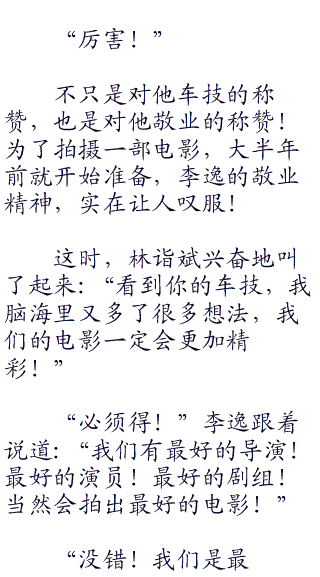 “厉害！”
不只是对他车技的称
赞，也是对他敬业的称赞！
为了拍摄一部电影，大半年
前就开始准备，李逸的敬业
精神，实在让人叹服！
这时，林诣斌兴奋地叫
了起来：“看到你的车技，我
脑海里又多了很多想法，我
们的电影一定会更加精
彩！”
“必须得！” 李逸跟着
说道：“我们有最好的导演！
最好的演员！最好的剧组！
当然会拍出最好的电影！”
“没错！我们是最